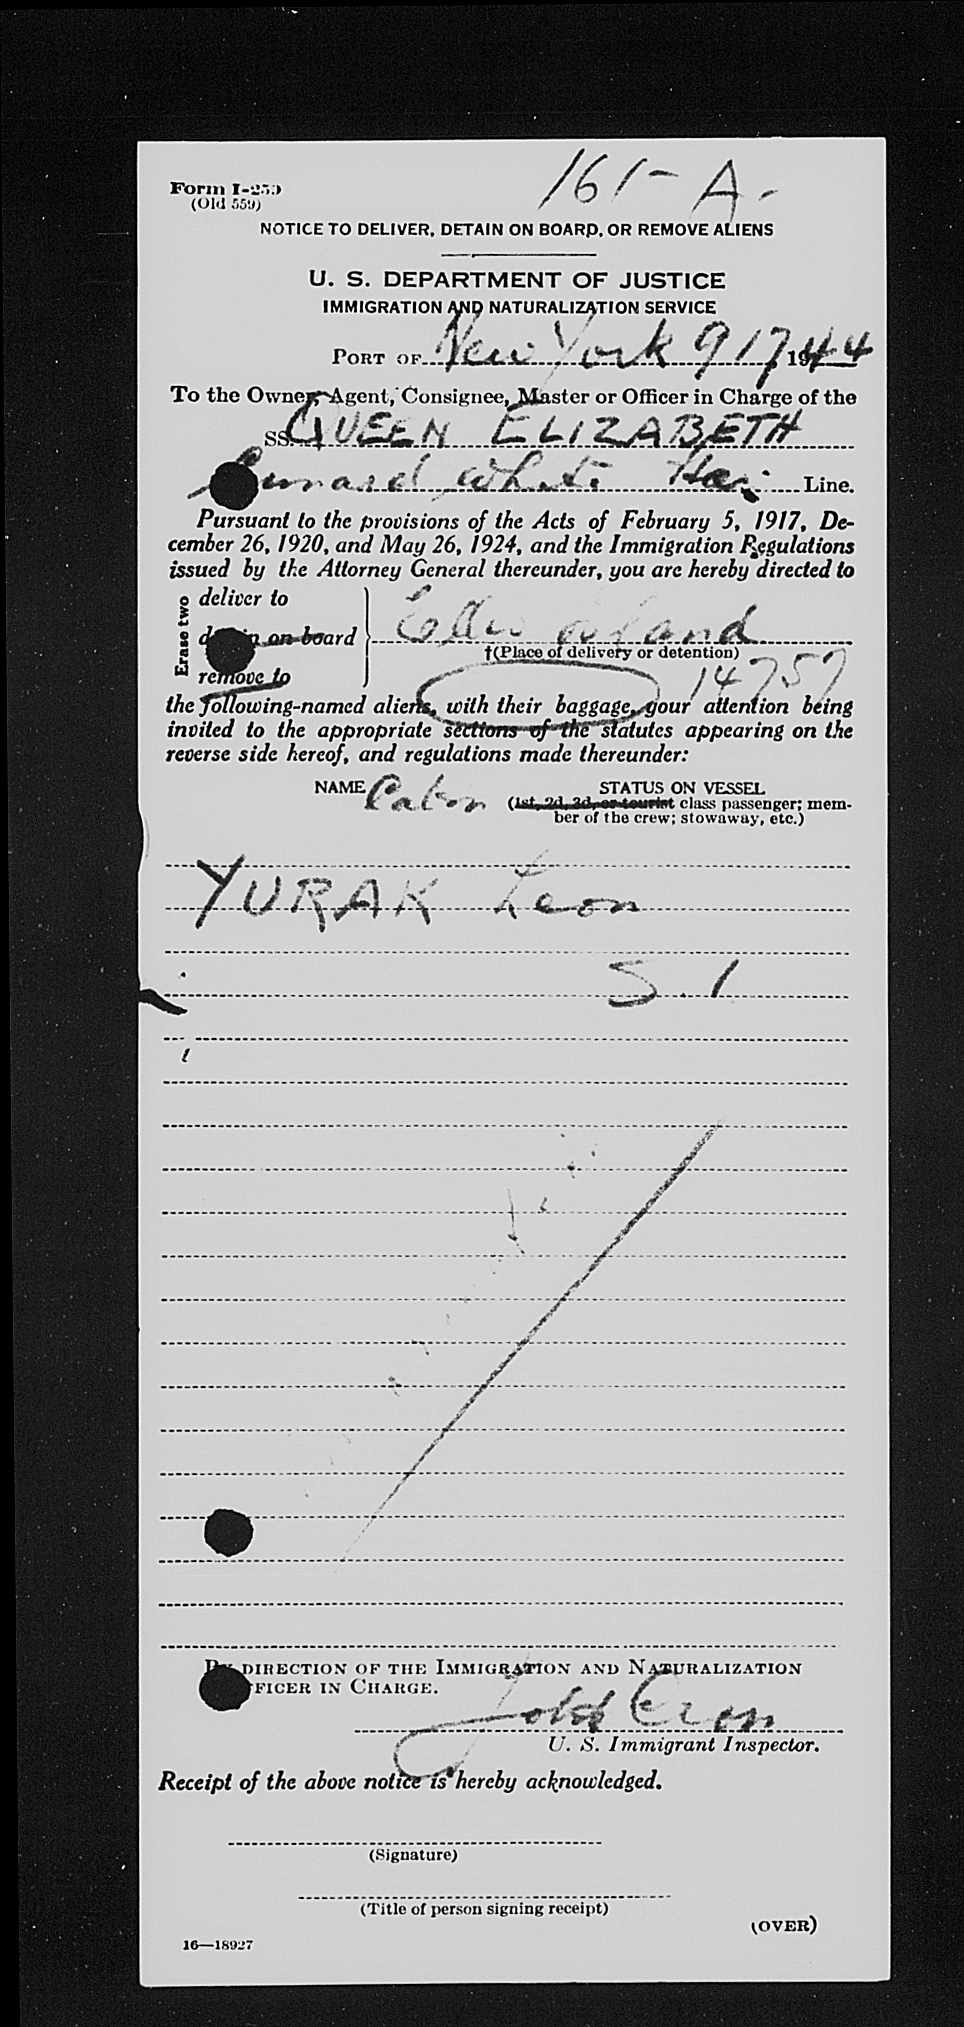 161-A.
Form I-259
(Old 559)
NOTICE TO DELIVER, DETAIN ON BOARD, OR REMOVE ALIENS
U. S. DEPARTMENT OF JUSTICE
IMMIGRATION AND NATURALIZATION SERVICE
PORT OF New York 9 17 1944
To the Owner, Agent, Consignee, Master or Officer in Charge of the
SS. QUEEN ELIZABETH
Cunard White Line.
Pursuant to the provisions of the Acts of February 5, 1917, De-
cember 26, 1920, and May 26, 1924, and the Immigration Regulations
issued by the Attorney General thereunder, you are hereby directed to
Erase two
deliver to
detain on board Ellis Island
†(Place of delivery or detention)
remove to 14757
the following-named aliens, with their baggage, your attention being
invited to the appropriate sections of the statutes appearing on the
reverse side hereof, and regulations made thereunder:
NAME Cabin STATUS ON VESSEL
(1st, 2d, 3d, or tourist class passenger; mem-
ber of the crew; stowaway, etc.)
YURAK Leon
S.1
BY DIRECTION OF THE IMMIGRATION AND NATURALIZATION
OFFICER IN CHARGE.
U. S. Immigrant Inspector.
Receipt of the above notice is hereby acknowledged.
(Signature)
(Title of person signing receipt)
(OVER)
16—18927